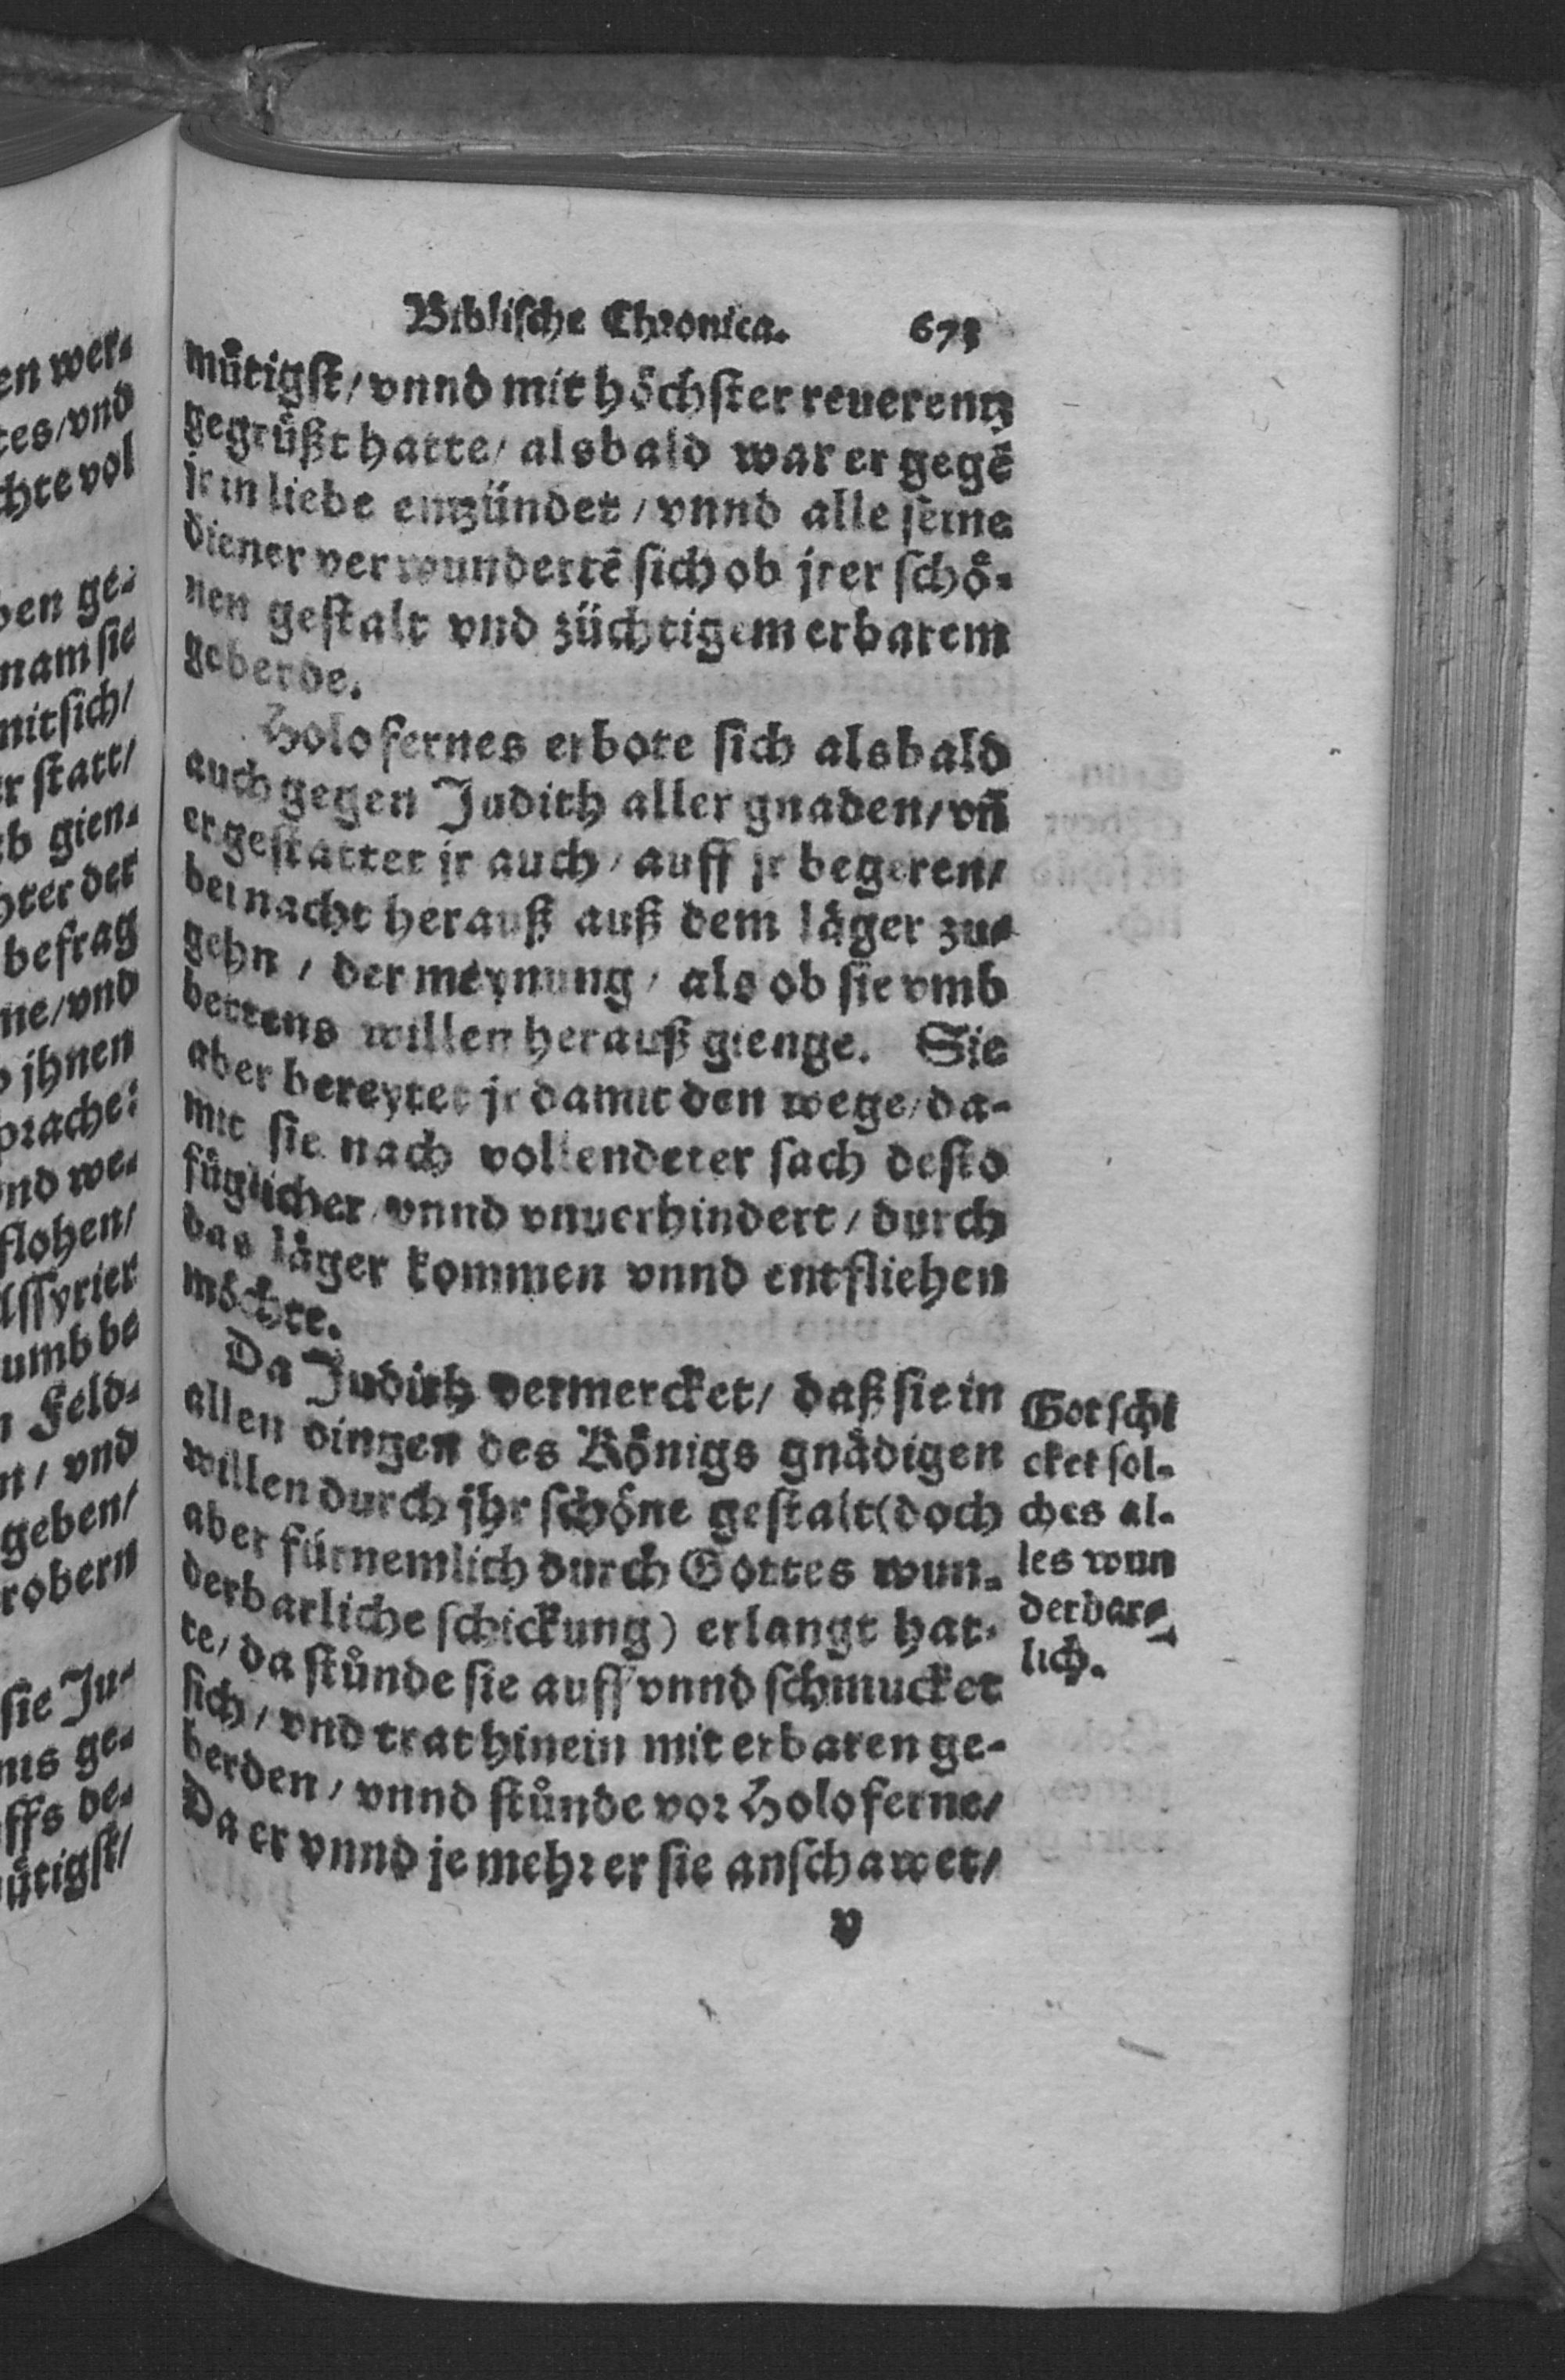 en wer⸗
tes/vnd
chte vol
ben ge⸗
nam sie
mit sich/
r statt/
b gien⸗
hter der
befrag
ne/vnd
ihnen
prache:
nd we⸗
flohen/
ssyrier
umb be
Feld⸗
n/ vnd
geben/
robern
sie Ju⸗
nis ge⸗
ffs de⸗
uͤtigst/
Biblische Chronica. 673
muͤtigst/ vnnd mit hoͤchster reuerentz
gegruͤßt hatte/ alsbald war er gegē
jr in liebe entzündet / vnnd alle seine
diener verwundertē sich ob jrer schoͤ⸗
nen gestalt vnd züchtigem erbarem
geberde.
Holofernes erbote sich alsbald
auch gegen Judith aller gnaden/ vn̄
er gestattet jr auch / auff jr begeren/
bei nacht herauß auß dem laͤger zu⸗
gehn / der meynung / als ob sie vmb
bettens willen herauß gienge. Sie
aber bereytet jr damit den wege/ da⸗
mit sie nach vollendeter sach desto
fuͤglicher / vnnd vnuerhindert / durch
das laͤger kommen vnnd entfliehen
moͤchte.
Da Judith vermercket/ daß sie in
allen dingen des Koͤnigs gnaͤdigen
willen durch jhr schoͤne gestalt (doch
aber fürnemlich durch Gottes wun⸗
derbarliche schickung) erlangt hat⸗
te/ da stuͦnde sie auff vnnd schmucket
sich / vnd trat hinein mit erbaren ge⸗
berden / vnnd stuͦnde vor Holoferne/
Da er vnnd je mehr er sie anschawet/
Got schi
cket sol⸗
ches al⸗
les wun
derbar⸗
lich.
v